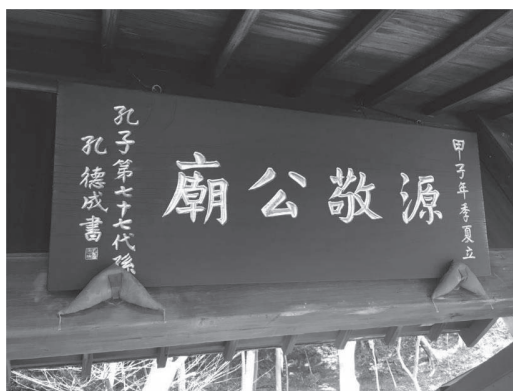 甲子年季夏立
源敬公廟
孔子第七十七代孫
孔德成書